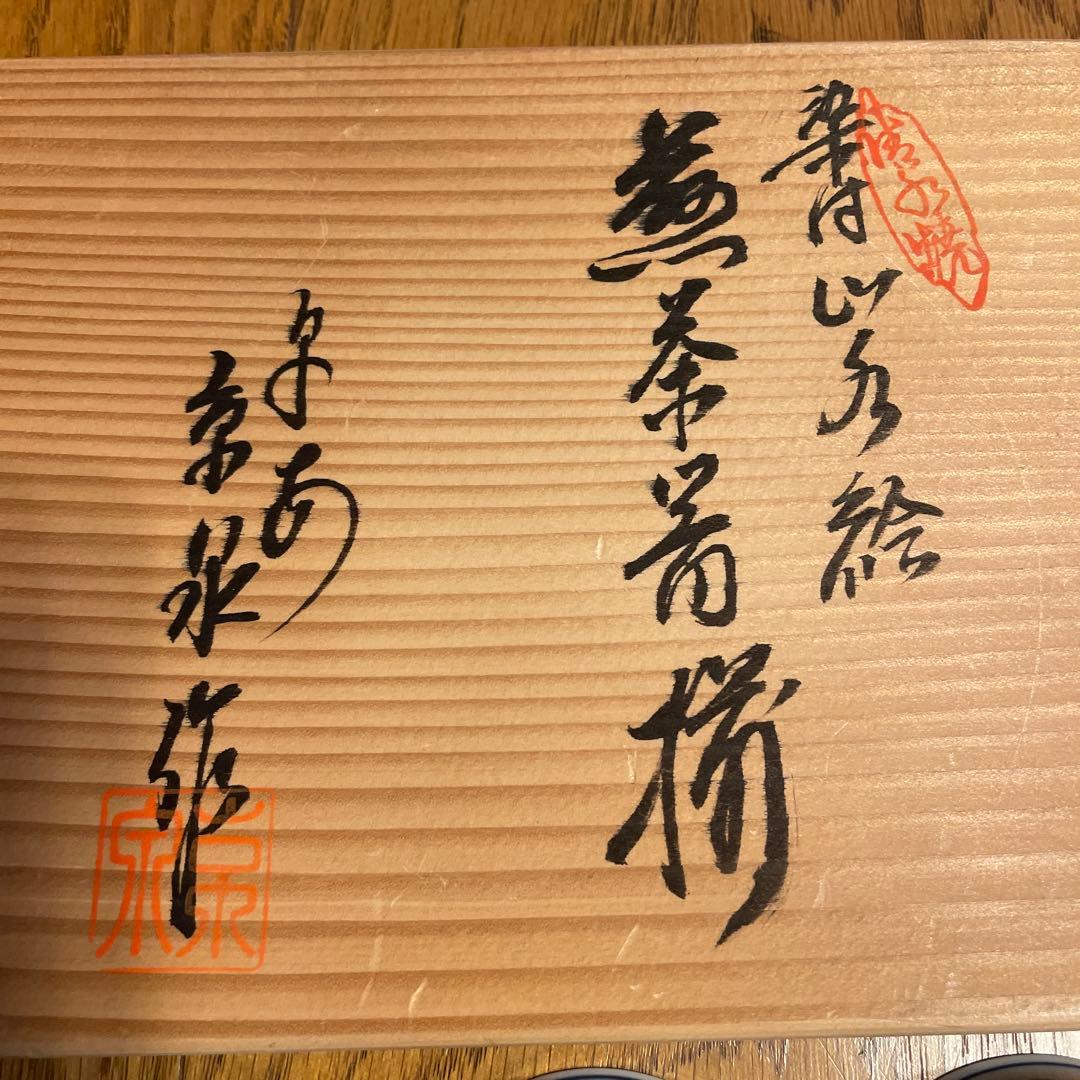 清水焼
染付山水絵
煎茶器揃
平安
京泉作
京泉